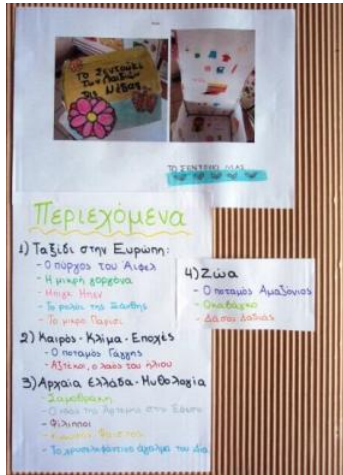 Το Σεντούκι
Των Παιδιών
της Νέδας
ΤΟ ΣΕΝΤΟΥΚΙ ΜΑΣ
Περιεχόμενα
1) Ταξίδι στην Ευρώπη:
- Ο πύργος του Άιφελ
- Η μικρή γοργόνα
- Μπιγκ Μπεν
- Το ρολόι της Ξάνθης
- Το μικρό Παρίσι
2) Καιρός - Κλίμα - Εποχές
- Ο ποταμός Γάγγης
- Αζτέκοι, ο λαός του ήλιου
3) Αρχαία Ελλάδα - Μυθολογία
- Σαμοθράκη
- Ο ναός της Άρτεμης στην Έφεσο
- Φίλιπποι
- Φαιστός
- Το χρυσελεφάντινο άγαλμα του Δία
4) Ζώα
- Ο ποταμός Αμαζόνιος
- Οκαβάγκο
- Δάσος Δαδιάς